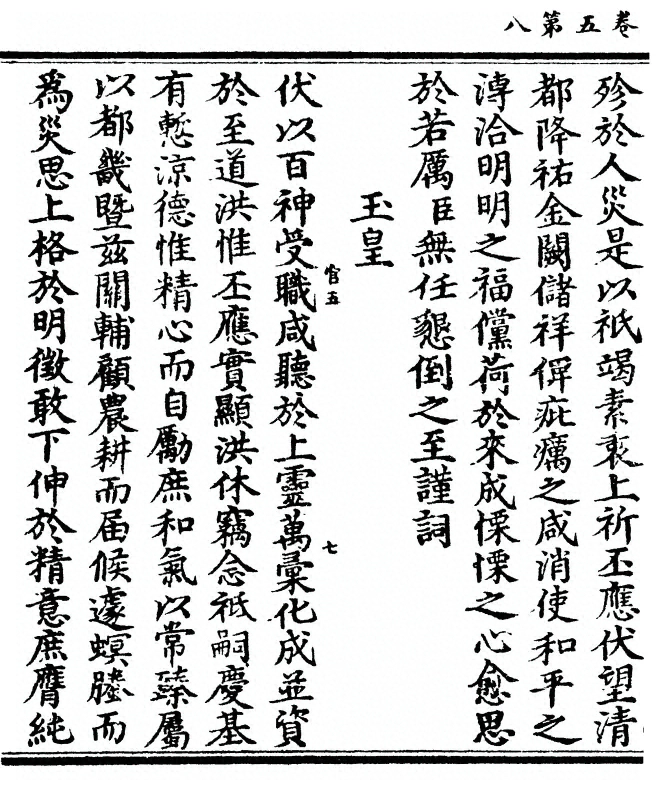 卷五第八
殄於人災是以祇竭素衷上祈丕應伏望清
都降祐金闕儲祥俾疵癘之咸消使和平之
溥洽明明之福儻荷於來成慄慄之心愈思
於若厲臣無任懇倒之至謹詞
玉皇
伏以百神受職咸聽於上靈萬彙化成並資
官五
七
於至道洪惟丕應實顯洪休竊念祇嗣慶基
有慙涼德惟精心而自勵庶和氣以常臻屬
以都畿暨茲關輔顧農耕而届候遽螟螣而
為災思上格於明徵敢下伸於精意庶膺純